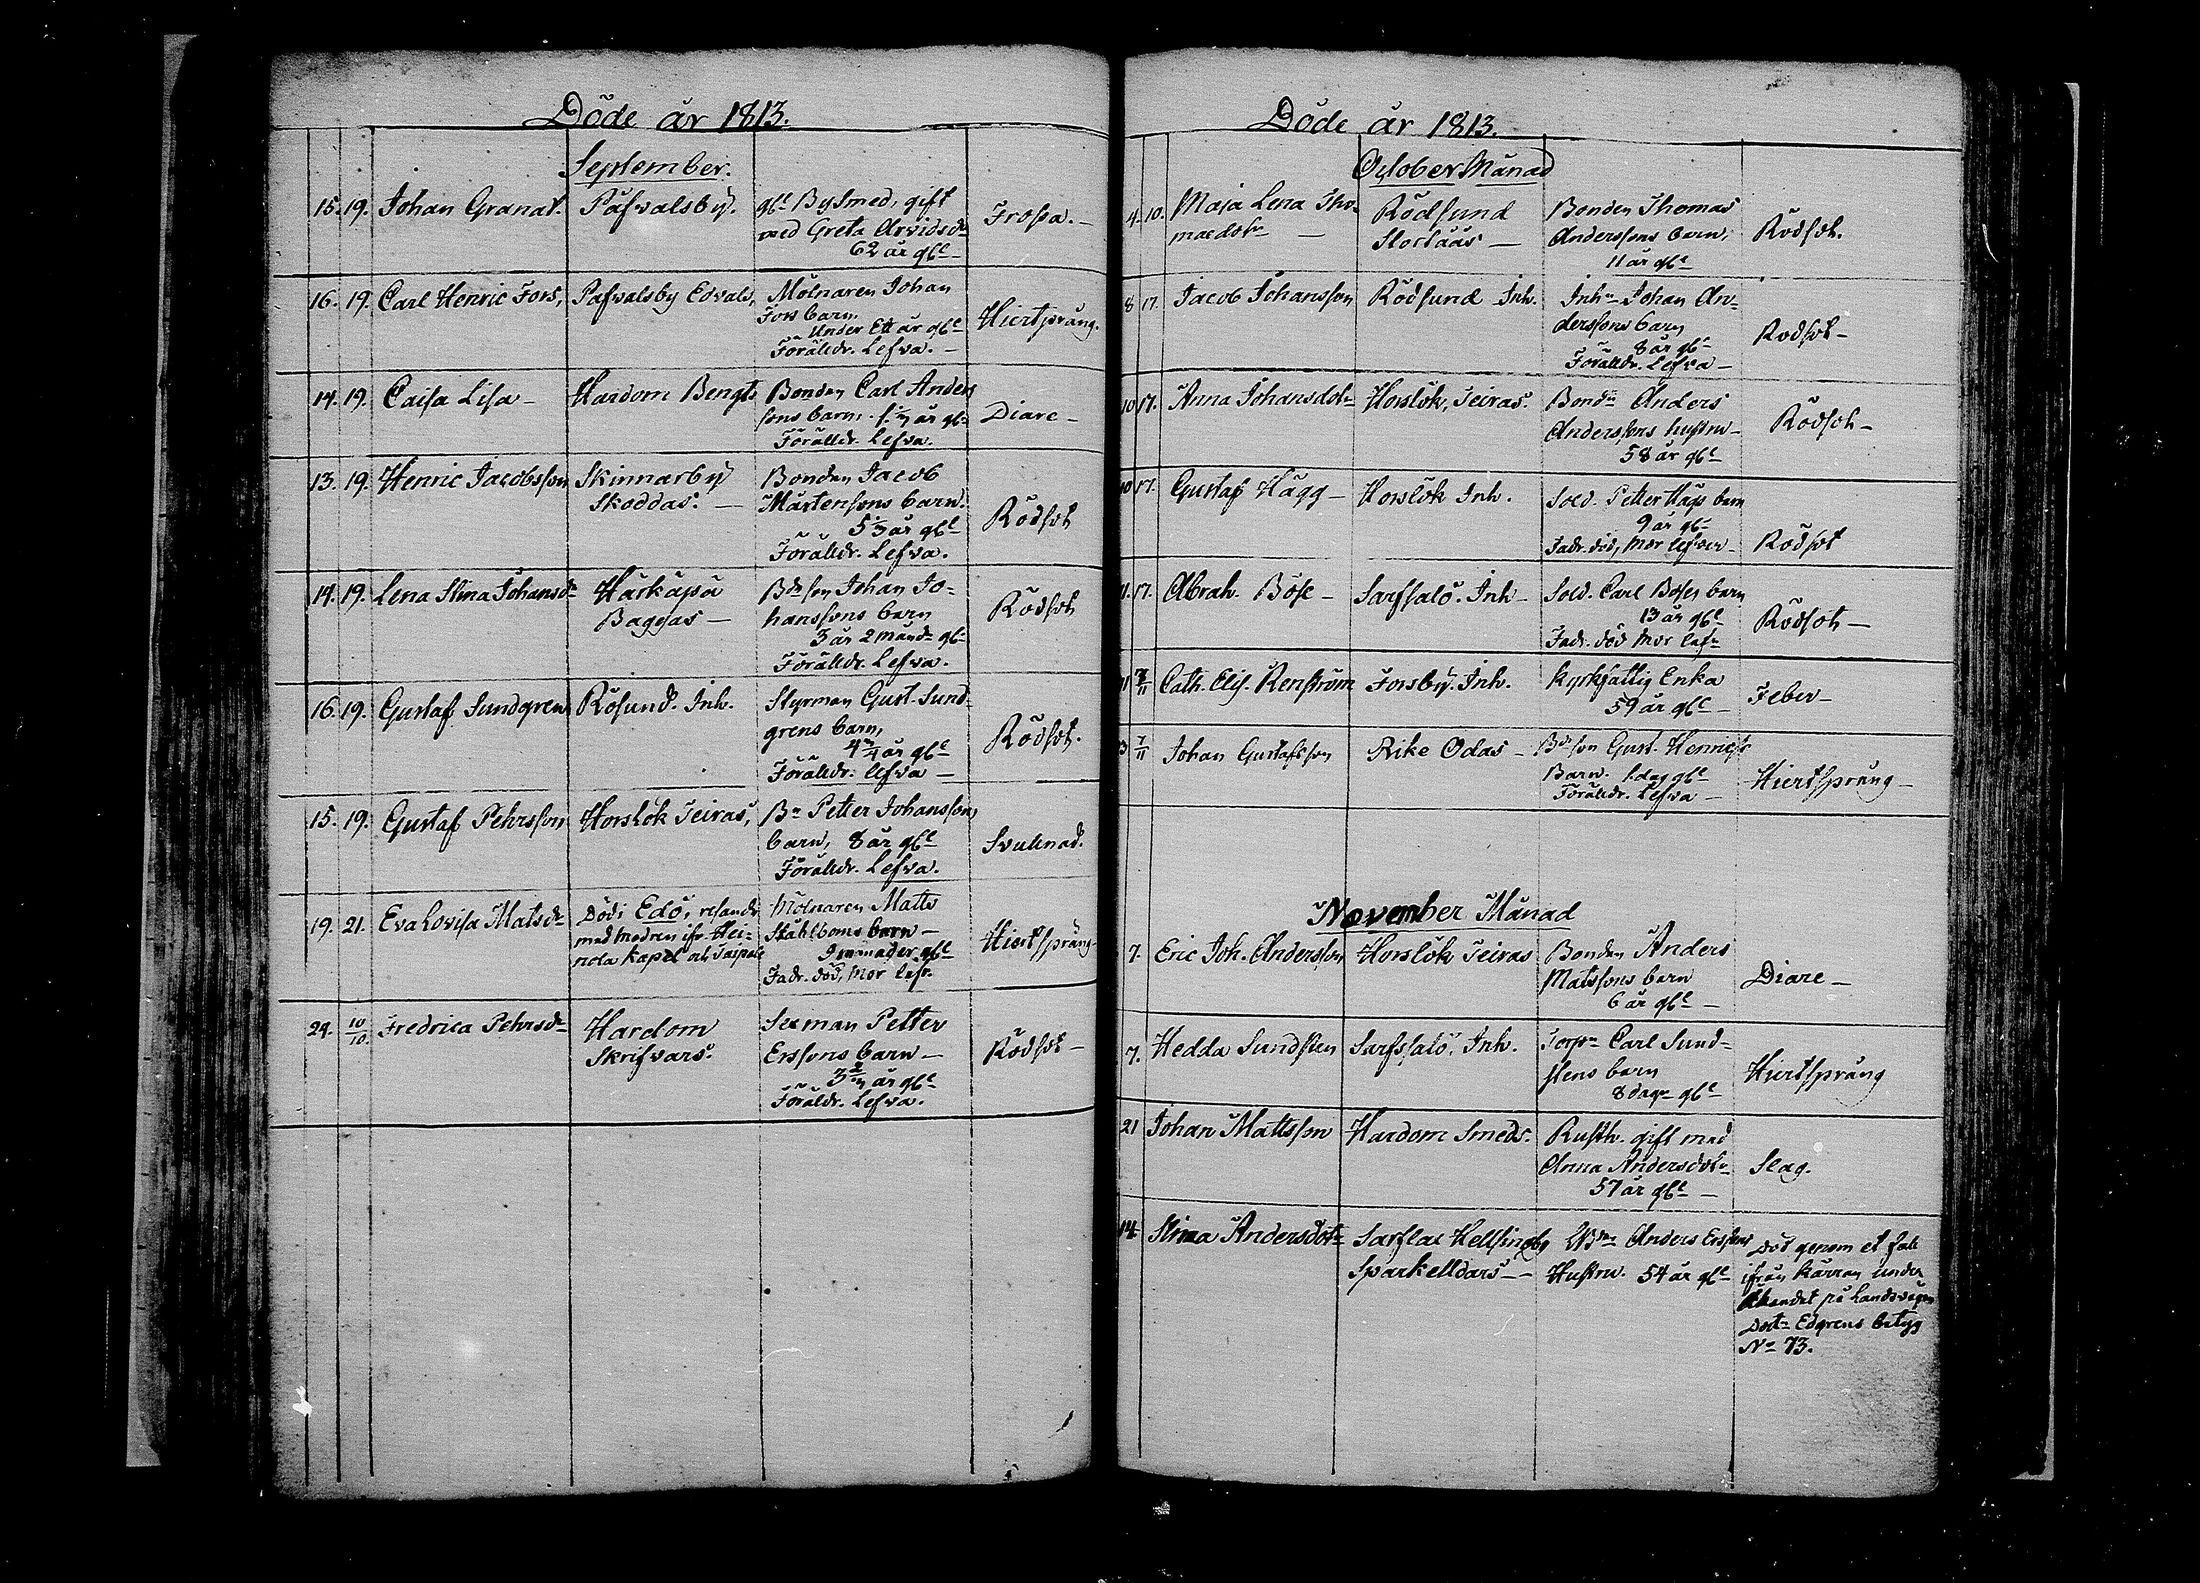 Döde år 1813.
September.
15. 19. Johan Granat. Påfvalsby. gbl Bysmed, gift
med Greta Arvidsdr
62 år gbl
Frossa.
16. 19. Carl Henric Fors, Påfvalsby Edvals, Mölnaren Johan
Fors barn
Under Ett år gbl
Föräldr. Lefva.
Hiertsprång.
14. 19. Caisa Lisa Hardom Bengts Bonden Carl Anders
sons barn. år gbl
Föräldr. Lefva.
Diare
13. 19. Henric Jacobsson Skinnarby
Skoddas.
Bonden Jacob
Mårtensons barn.
år gbl
Föräldr. Lefva.
Rödsot
14. 19. Lena Stina Johansdr Härkäpä
Baggas
Bdeson Johan Jo=
hanssons barn
3 år 2 månadr gbl
Föräldr. Lefva.
Rödsot
16. 19. Gustaf Sundgren Rösund. Inh. Styrman Gust. Sund=
grens barn,
år gbl
Föräldr. lefva
Rödsot.
15. 19. Gustaf Pehrsson Horslök Teiras, Bn Petter Johansson
barn, 8 år gbl
Föräldr. Lefva.
Svullnad.
19. 21. Eva Lovisa Matsdr Död i Edö, resande
med modren ifr. Hei=
nola Kapel och
Mölnaren Matts
Ståhlboms barn
9 månader gbl
Fadr. död, Mor lefr.
Hiertsprång
24. 10/10. Fredrica Pehrsdr Hardom
Skrifvars.
Sexman Petter
Erssons barn
3 2/3 år gbl
Föräldr. Lefva.
Rödsot
Döde år 1813.
October Månad
4. 10. Maja Lena Tho=
masdotr
Rödsund
Storlåås
Bonden Thomas
Anderssons barn,
11 år gbl
Rödsot.
8 17. Jacob Johansson Rödsund Inh. Inhn Johan An=
derssons barn
8 år gbl
Föräldr. Lefva
Rödsot
10 17. Anna Johansdotr Horslök, Teiras. Bondn Anders
Anderssons hustru
58 år gbl
Rödsot
10 17. Gustaf Hägg Horslök Inh. Sold. Petter Hägs barn
9 år gbl
Fadr. död, Mor lefver
Rödsot
11. 17. Abrah. Böse Sarfsalö. Inh. Sold. Carl Böses barn
13 år gbl
Fadr. död Mor lefr
Rödsot
11 7/11 Cath. Elis. Renström Forsby. Inh. Kyrkfattig Enka
59 år gbl
Feber
7/11 Johan Gustafsson Rike Odas Bdeson Gust. Henricss
Barn. 1 dag gbl
Föräldr. Lefva
Hiertsprång
November Månad
7. Eric Joh. Andersson Horslök Teiras Bonden Anders
Matssons barn
6 år gbl
Diare
7. Hedda Sundsten Sarfssalö. Inh. Torpr Carl Sund=
stens barn
8 dagr gbl
Hiertsprång
21 Johan Mattsson Hardom Smeds. Rusth. gift med
Anna Andersdotr
57 år gbl
Slag.
14. Stina Andersdotr Sarflax Hellsingby
Sparkelldars
Anders Erssons
Hustru. 54 år gbl
Död genom et fall
ifrån kärran under
åkandet på Landsvägen
Doctr Edgrens betyg
No 73.